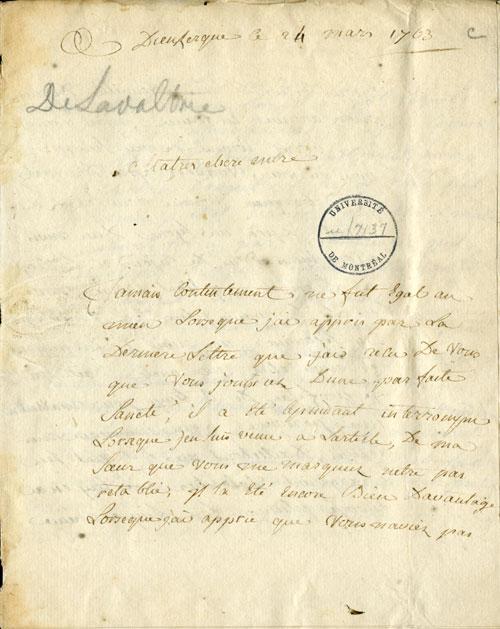 Dunkerque ce 24 mars 1763 C
De Lavaltrie
Ma tres chere mere
UNIVERSITÉ
DE MONTRÉAL
Jamais Contentement ne fut Egal au
mien Lorseque j'ai appris par La
Derniere Lettre que j'ais recu De Vous
que Vous jouissiez Dune parfaite
Sancté, il a été Cependant interrompue
Lorseque j'en suis venu a Larticle, De ma
Sœur que Vous me marquiez netre pas
retablie, il la Eté encore Bien Davantage
Lorseque j'ai appris que Vous naviez pas